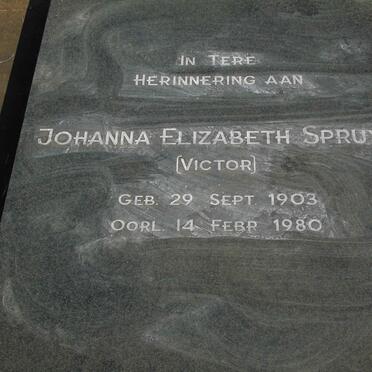 In Tere
Herinnering aan
Johanna Elizabeth
(Victor)
Geb. 29 Sept. 1903
Oorl. 14 Febr 1980